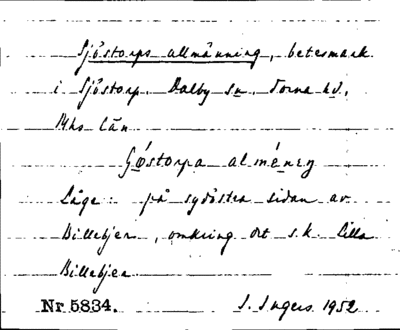 Sjöstorps allmänning, betesmark
i Sjöstorp. Dalby sn. Torna hd,
Mhs län
Såstorpa alméneg
Läge: på sydöstra sidan av
Billebjer, omkring det s.k. Lilla
Billebjer
Nr 5834. I. Ingers 1952